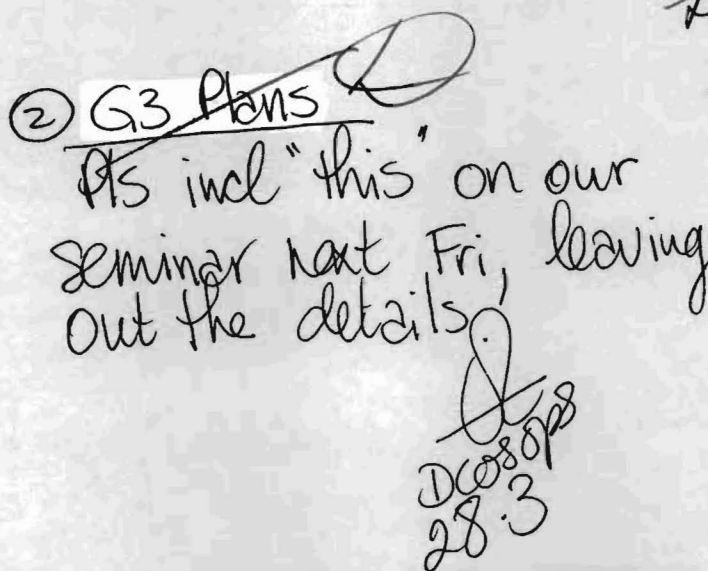 ② G3 Plans
Pls incl "this" on our
seminar next Fri, leaving
out the details.
DCOSOPS
28.3